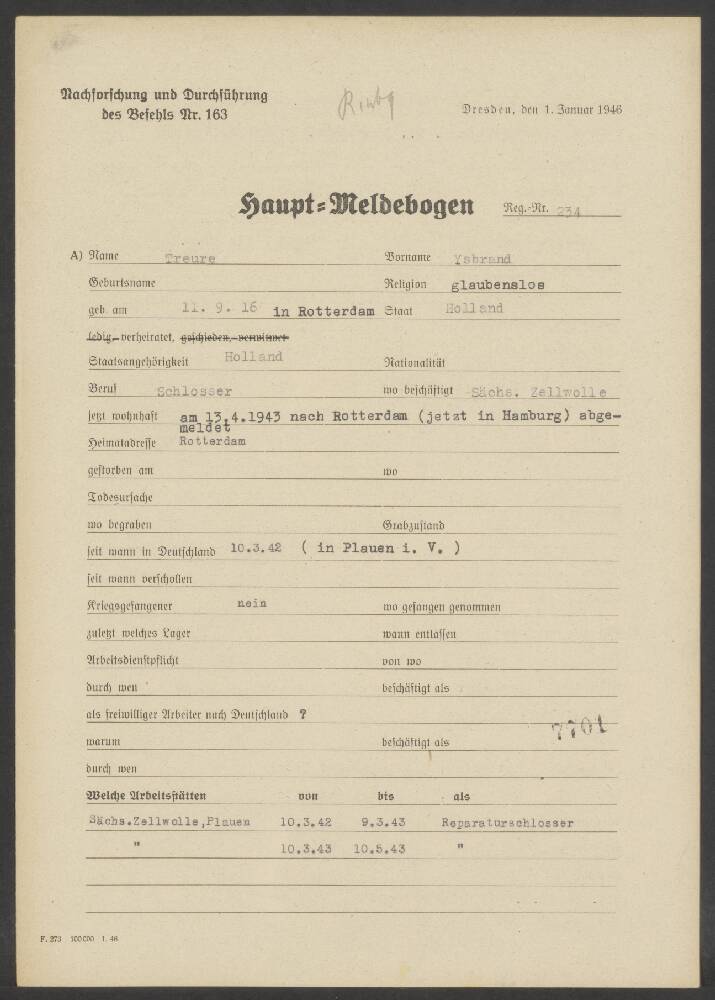 Nachforschung und Durchführung
des Befehls Nr. 163
Dresden, den 1. Januar 1946
Haupt-Meldebogen Reg.-Nr. 234
A) Name Treure Vorname Ysbrand
Geburtsname Religion glaubenslos
geb. am 11. 9. 16 in Rotterdam Staat Holland
ledig, verheiratet, geschieden, verwitwet
Staatsangehörigkeit Holland Nationalität
Beruf Schlosser wo beschäftigt Sächs. Zellwolle
jetzt wohnhaft am 13.4.1943 nach Rotterdam (jetzt in Hamburg) abge-
meldet
Heimatadresse Rotterdam
gestorben am wo
Todesursache
wo begraben Grabzustand
seit wann in Deutschland 10.3.42 ( in Plauen i. V. )
seit wann verschollen
Kriegsgefangener nein wo gefangen genommen
zuletzt welches Lager wann entlassen
Arbeitsdienstpflicht von wo
durch wen beschäftigt als
als freiwilliger Arbeiter nach Deutschland ?
7701
warum beschäftigt als
durch wen
Welche Arbeitsstätten von bis als
Sächs.Zellwolle,Plauen 10.3.42 9.3.43 Reparaturschlosser
" 10.3.43 10.5.43 "
F. 273 100000 1. 46